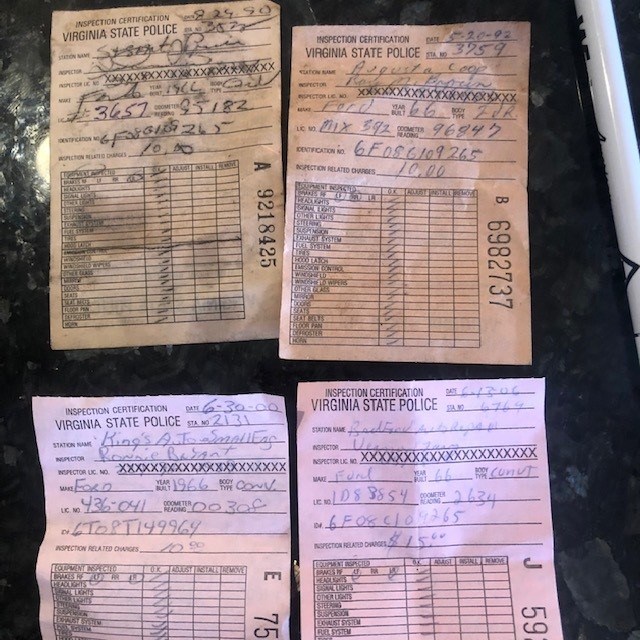 INSPECTION CERTIFICATION
VIRGINIA STATE POLICE
8-29-90
STATION NAME
INSPECTOR
INSPECTOR LIC. NO. XXXXXXXXXXXXXXXXXXXX
MAKE Ford YEAR BUILT 1966 BODY TYPE
3657 ODOMETER READING 95182
IDENTIFICATION NO. 6F08C109265
INSPECTION RELATED CHARGES 10.00
EQUIPMENT INSPECTED O.K. ADJUST INSTALL REMOVE
BRAKES RF LF RR LR
HEADLIGHTS
SIGNAL LIGHTS
OTHER LIGHTS
STEERING
SUSPENSION
EXHAUST SYSTEM
FUEL SYSTEM
TIRES
HOOD LATCH
WINDSHIELD
WINDSHIELD WIPERS
OTHER GLASS
MIRROR
DOORS
SEATS
SEAT BELTS
FLOOR PAN
DEFROSTER
HORN
A 9218425
INSPECTION CERTIFICATION DATE 5-20-92
VIRGINIA STATE POLICE STA. NO. 3759
STATION NAME Augusta Coop
INSPECTOR
INSPECTOR LIC. NO. XXXXXXXXXXXXXXXXXXXX
MAKE Ford YEAR BUILT 66 BODY TYPE
LIC. NO. MIX 392 ODOMETER READING 96847
IDENTIFICATION NO. 6F08C109265
INSPECTION RELATED CHARGES 10.00
EQUIPMENT INSPECTED O.K. ADJUST INSTALL REMOVE
BRAKES RF LF RR LR
HEADLIGHTS
SIGNAL LIGHTS
OTHER LIGHTS
STEERING
SUSPENSION
EXHAUST SYSTEM
FUEL SYSTEM
TIRES
HOOD LATCH
EMISSION CONTROL
WINDSHIELD
WINDSHIELD WIPERS
OTHER GLASS
MIRROR
DOORS
SEATS
SEAT BELTS
FLOOR PAN
DEFROSTER
HORN
B 6982737
INSPECTION CERTIFICATION DATE 6-30-00
VIRGINIA STATE POLICE STA. NO. 2131
STATION NAME King's
INSPECTOR Ronnie Bryant
INSPECTOR LIC. NO. XXXXXXXXXXXXXXXXXXXX
MAKE Ford YEAR BUILT 1966 BODY TYPE Conv
LIC. NO. 436-041 ODOMETER READING 00308
ID# 6T08T149964
INSPECTION RELATED CHARGES 10.00
EQUIPMENT INSPECTED O.K. ADJUST INSTALL REMOVE
BRAKES RF LF RR LR
HEADLIGHTS
SIGNAL LIGHTS
OTHER LIGHTS
STEERING
SUSPENSION
EXHAUST SYSTEM
E 75
INSPECTION CERTIFICATION DATE 6-13-06
VIRGINIA STATE POLICE STA. NO. 6769
STATION NAME
INSPECTOR
INSPECTOR LIC. NO. XXXXXXXXXXXXXXXXXXXX
MAKE Ford YEAR BUILT 66 BODY TYPE Convt
LIC. NO. 1D83854 ODOMETER READING 2634
ID# 6F08C109265
INSPECTION RELATED CHARGES $15.00
EQUIPMENT INSPECTED O.K. ADJUST INSTALL REMOVE
BRAKES RF LF RR LR
HEADLIGHTS
SIGNAL LIGHTS
OTHER LIGHTS
STEERING
SUSPENSION
EXHAUST SYSTEM
FUEL SYSTEM
J 59
WE